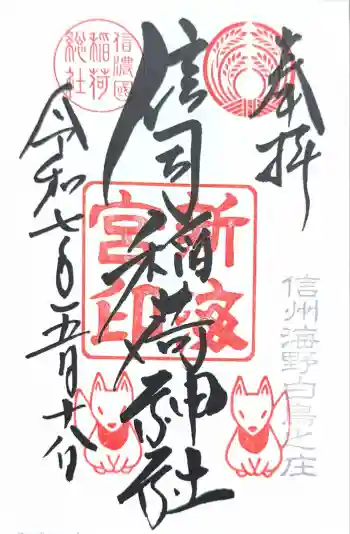 奉拝
信州海野白鳥之庄
信司稲荷神社
信濃國
稲荷
総社
令和七年五月十八日